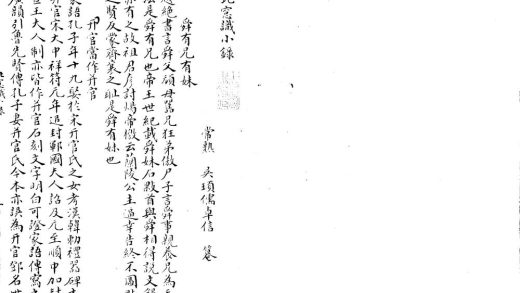 意識小錄
常熟 吳頊儒卓信 纂
舜有兄有妹
越絕書言舜父頑母嚚兄狂弟傲尸子言舜事親養兄為
法是舜有兄也帝王世紀載舜妹名敤首與舜相得說文
亦有之故祖君彥討煬帝檄云蘭陵公主逼幸告終不圖
之賢反蒙齊襄之恥是舜有妹也
官當作并官
家語孔子年十九娶於宋开官氏之女考漢韓勑禮器碑
并官宋大中祥符元年追封鄆國夫人詔及元至順中加封
聖王夫人制亦皆作并官石刻文字明白可證家語傳寫
廣韻引魯先賢傳孔子妻并官氏今本亦誤為开官鄧名世